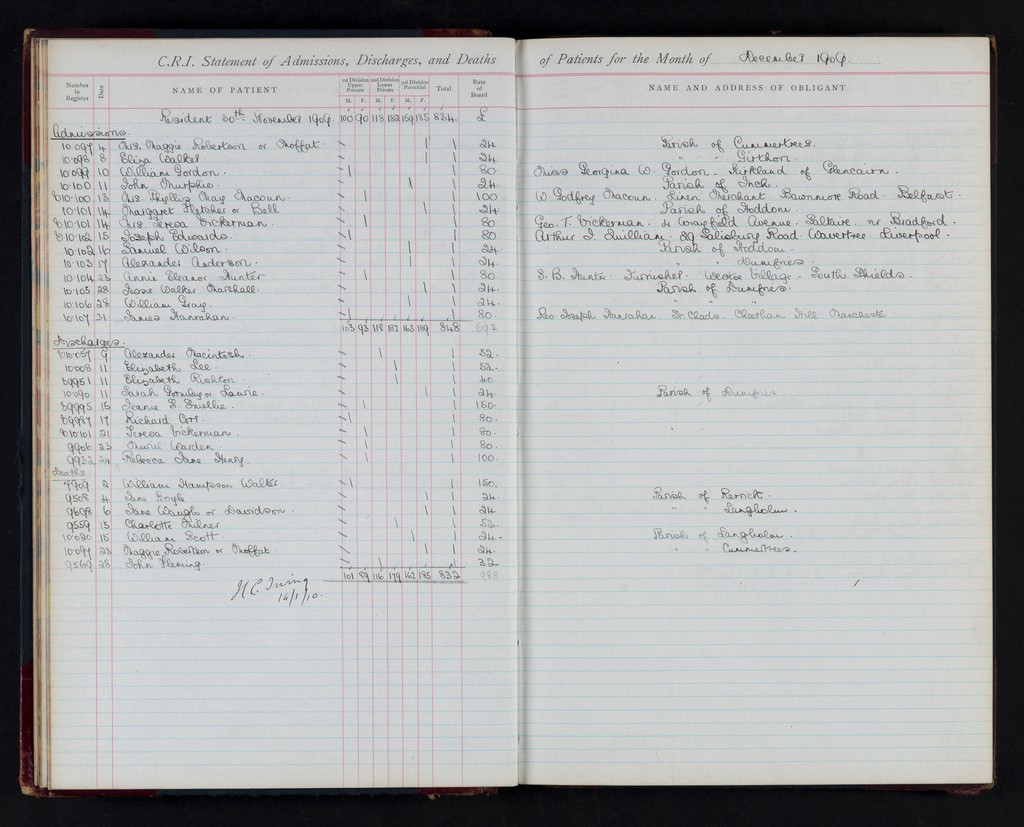 C.R.I. Statement of Admissions, Discharges, and Deaths of Patients for the Month of December 1909.
Number in Register Date NAME OF PATIENT 1st Division Upper Private 2nd Division Lower Private 3rd Division Parochial Total Rate of Board NAME AND ADDRESS OF OBLIGANT
M. F. M. F. M. F.
Resident 30th November 1909. 100 90 118 182 159 185 834 £
Admissions.
10.097 4 Mrs. Maggie Robertson or Moffat 24 Parish of Cummertrees.
10.098 8 Eliza Walker 24 " " Girthon.
10.099 10 William Gordon. 80 Miss Georgina W. Gordon. Kirkland of Glencairn.
10.100 11 John Murphie. 24. Parish of Inch.
b10.100 13 Mrs. Phyllis May Macoun. 100 W. Godfrey Macoun. Linen Merchant. Bawnmore Road. Belfast.
10.101 14 Margaret Fletcher or Bell 24. Parish of Hoddom.
b10.101 14 Mrs. Teresa Vickerman. 80 Geo. T. Vickerman. 4 Avenue. Saltaire. nr Bradford.
b10.102 15 Joseph Edwards. 80 Arthur J. Quilliam. 89 Salisbury Road. Wavertree. Liverpool.
10.102 16 Samuel Wilson. 24. Parish of Hoddom.
10.103 17 Alexander Anderson. 24. " " Dumfries.
10.104 23 Annie Eleanor Hunter 80. S. B. Hunter. Furnisher. Westoe Village. South Shields.
10.105 28 Jessie Walker Marshall. 24. Parish of Dumfries.
10.106 28 William Gray. 24. " " "
10.107 31 James Hanrahan. 80. Rev. Joseph Hanrahan. St Chads. Cheetham Hill Manchester
103 93 118 182 163 189 848 692
Discharges.
b10.057 9 Alexander Macintosh. 52.
10.008 11 Elizabeth Lee. 52.
b9951 11 Elizabeth Rishton. 40.
10.090 11 Sarah Gormley or Laurie. 24 Parish of Dumfries
b9995 15 Jeanie S. Smellie. 150.
b9987 17 Richard 80.
b10101 21 Teresa Vickerman. 80.
9906 23 Muriel Warden. 80.
9932 24 Rebecca Jane Henry. 100.
Deaths
7909 2 William Hampson Walter. 150.
9508 4 Jane 24. Parish of Rerrick.
9698 6 Jane Waugh or Davidson. 24 " " Langholm.
9559 15 Charlotte Milner. 52.
10.020 15 William Scott 24. Parish of Langholm.
10.097 23 Maggie Robertson or Moffat 24. " " Cummertrees.
9569 28 John Fleming. 32
101 89 116 179 162 185 832 988
14/1/10.